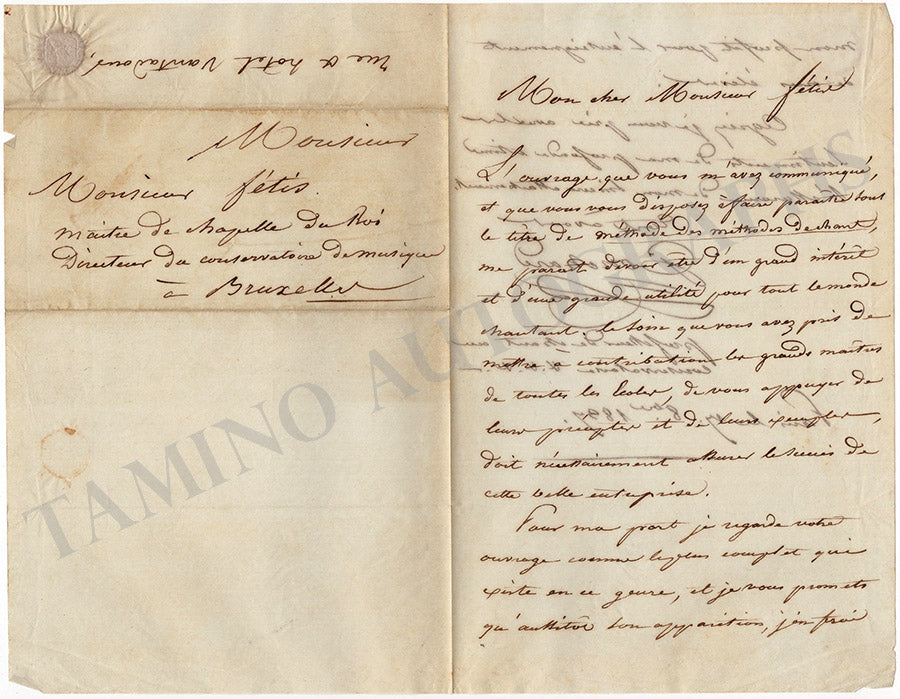 rue & hôtel Vantadour,
Monsieur
Monsieur fétis.
maitre de chapelle du Roi
Directeur du conservatoire de musique
à Bruxelles
Mon cher Monsieur fétis
L'ouvrage que vous m'avez communiqué,
et que vous vous disposez à faire paraitre sous
le titre de méthode des méthodes de chant,
me parait devoir etre d'un grand intérêt
et d'une grande utilité pour tout le monde
chantant. le soin que vous avez pris de
mettre a contribution les grands maitres
de toutes les Ecoles, de vous appuyer de
leurs préceptes et de leurs exemples,
doit nécessairement assurer le succès de
cette belle entreprise.
Pour ma part je regarde votre
ouvrage comme le plus complet qui
existe en ce genre, et je vous promets
qu'aussitôt son apparition, j'en ferai
TAMINO AUTOGRAPHS